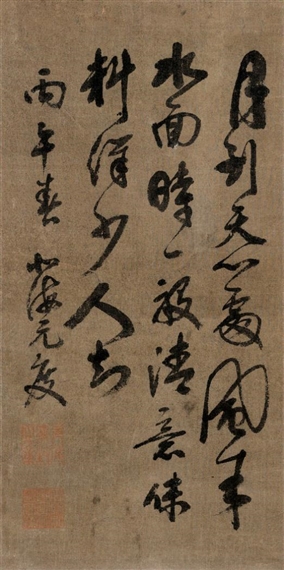 月到天心處風来
水面時一般清意味
料得少人知
丙午春北海元度